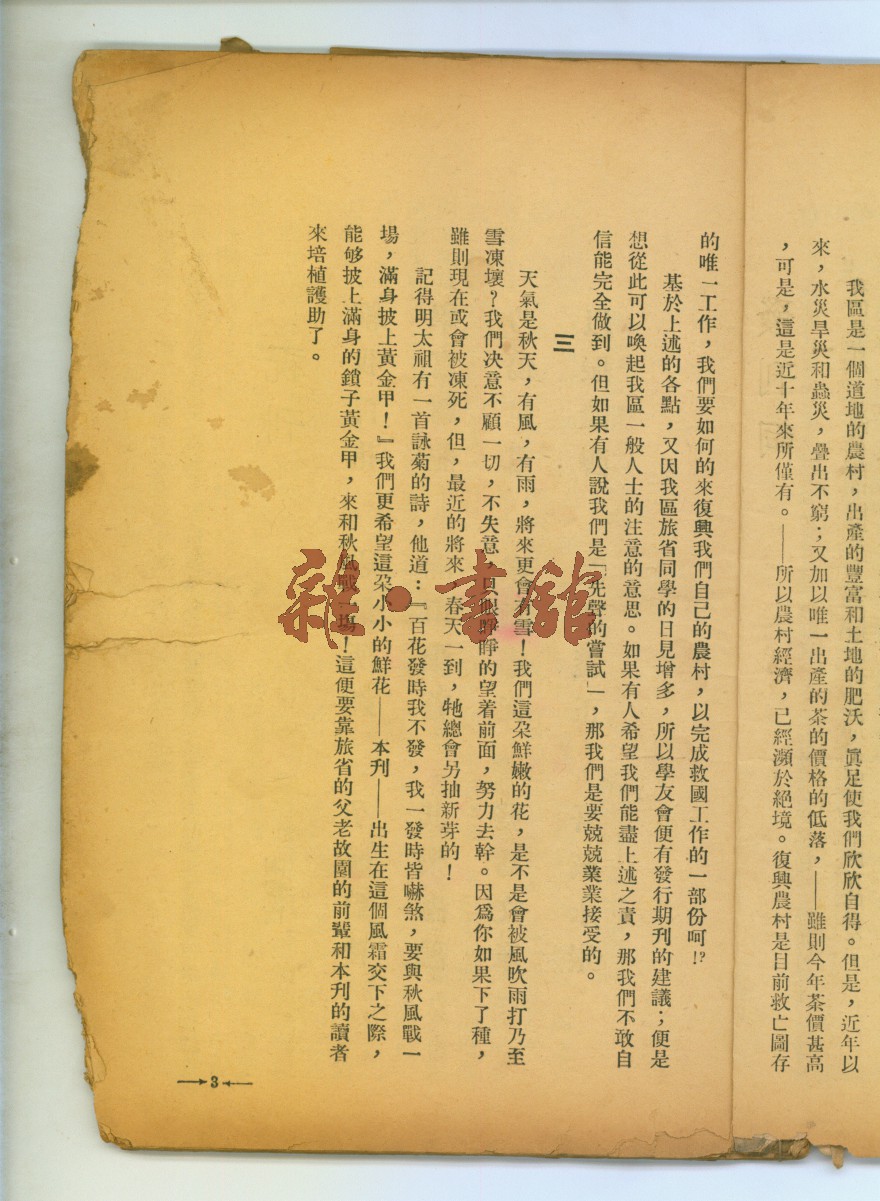 我區是一個道地的農村，出產的豐富和土地的肥沃，眞足使我們欣欣自得。但是，近年以
來，水災旱災和蟲災，疊出不窮；又加以唯一出產的茶的價格的低落，——雖則今年茶價甚高
，可是，這是近十年來所僅有。——所以農村經濟，已經瀕於絕境。復興農村是目前救亡圖存
的唯一工作，我們要如何的來復興我們自己的農村，以完成救國工作的一部份呵！？
基於上述的各點，又因我區旅省同學的日見增多，所以學友會便有發行期刊的建議；便是
想從此可以喚起我區一般人士的注意的意思。如果有人希望我們能盡上述之責，那我們不敢自
信能完全做到。但如果有人說我們是「先聲的嘗試」，那我們是要兢兢業業接受的。
三
天氣是秋天，有風，有雨，將來更會有雪！我們這朶鮮嫩的花，是不是會被風吹雨打乃至
雪凍壞？我們决意不顧一切，不失意，只眼睜睜的望着前面，努力去幹。因爲你如果下了種，
雖則現在或會被凍死，但，最近的將來，春天一到，牠總會另抽新芽的！
記得明太祖有一首詠菊的詩，他道：『百花發時我不發，我一發時皆嚇煞，要與秋風戰一
場，滿身披上黃金甲！』我們更希望這朶小小的鮮花——本刊——出生在這個風霜交下之際，
能够披上滿身的鎖子黃金甲，來和秋風戰一塲！這便要靠旅省的父老故園的前輩和本刊的讀者
來培植護助了。
3
雜·書館